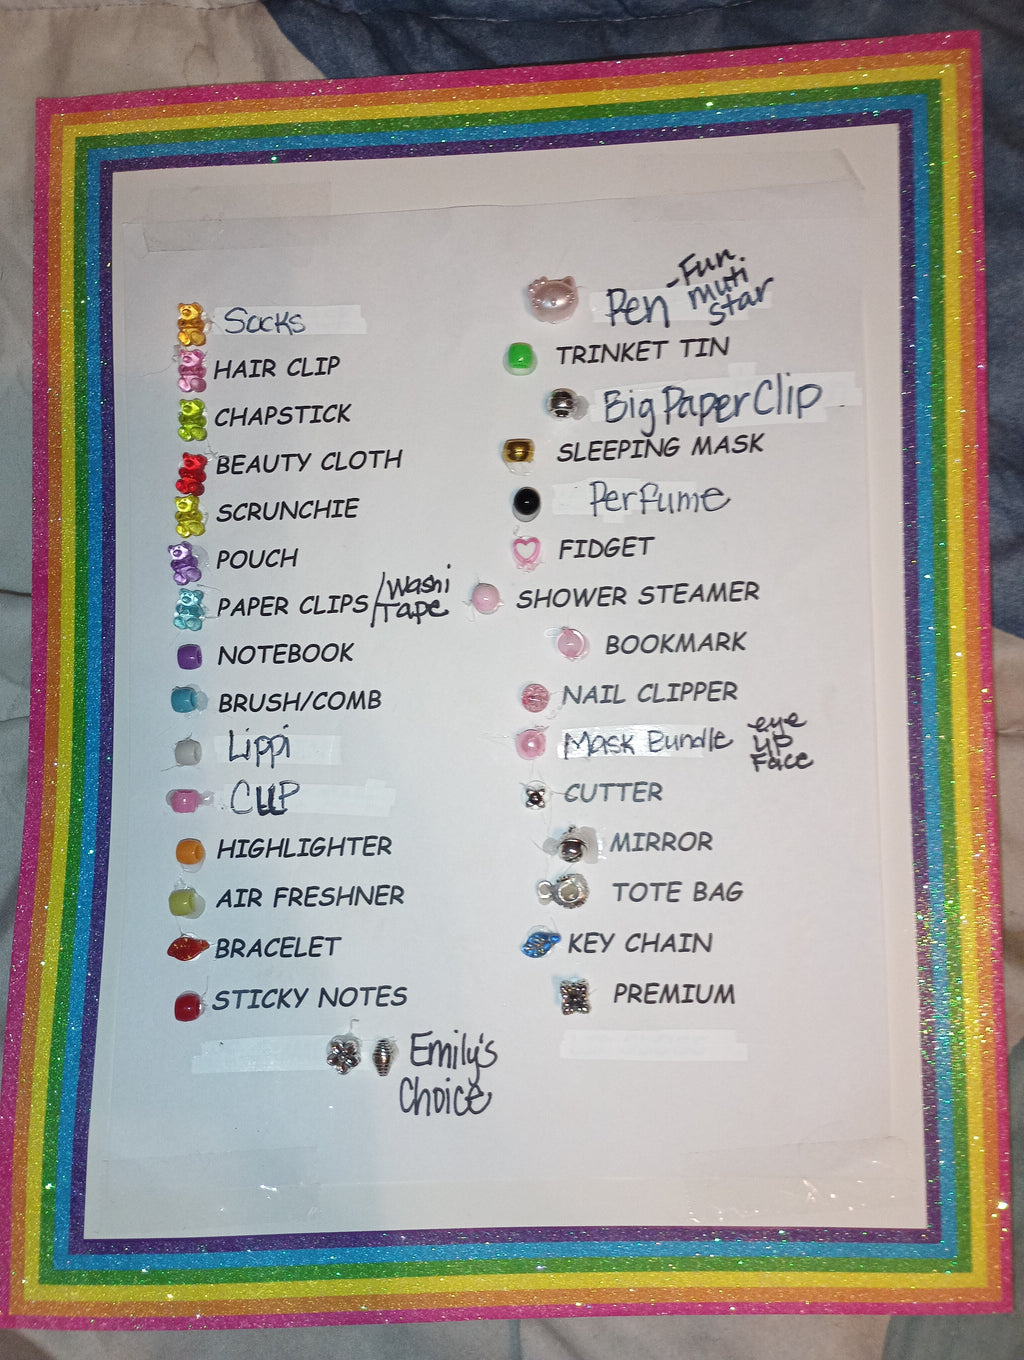 Socks
HAIR CLIP
CHAPSTICK
BEAUTY CLOTH
SCRUNCHIE
POUCH
PAPER CLIPS/Washi Tape
NOTEBOOK
BRUSH/COMB
Lippi
CUP
HIGHLIGHTER
AIR FRESHNER
BRACELET
STICKY NOTES
Pen - Fun. muti star
TRINKET TIN
Big Paper Clip
SLEEPING MASK
Perfume
FIDGET
SHOWER STEAMER
BOOKMARK
NAIL CLIPPER
Mask Bundle eye lip Face
CUTTER
MIRROR
TOTE BAG
KEY CHAIN
PREMIUM
Emily's
Choice